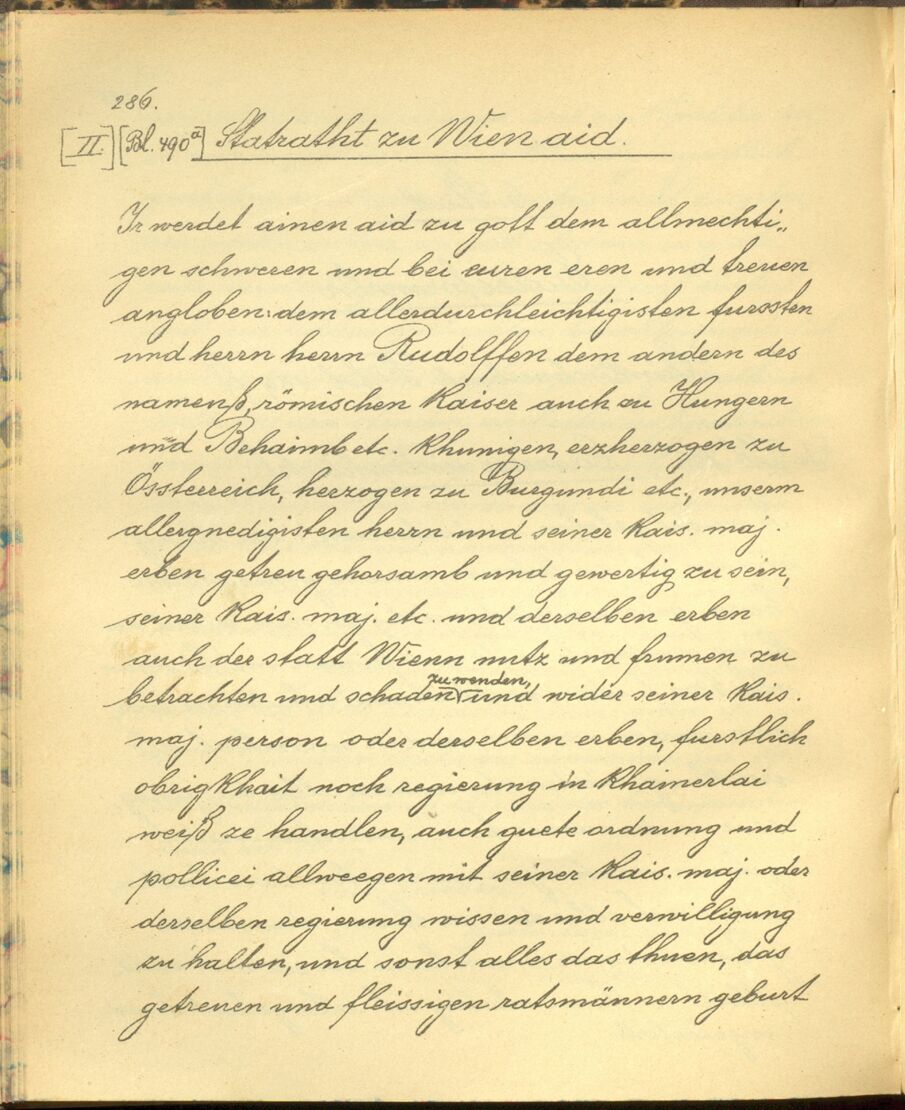 286.
[II.] [Bl. 490a] Statratht zu Wien aid.
Ir werdet ainen aid zu gott dem allmechti„
gen schweren und bei euren eren und treuen
angloben: dem allerdurchleichtigisten furssten
und herrn herrn Rudolffen dem andern des
namenß, römischen Kaiser auch zu Hungern
und Behaimb etc. Khunigen, erzherzogen zu
Össterreich, herzogen zu Burgundi etc., unserm
allergnedigisten herrn und seiner Kais. maj.
erben getreu gehorsamb und gewertig zu sein,
seiner Kais. maj. etc. und derselben erben
auch der statt Wienn nutz und frumen zu
betrachten und schaden zu wenden, und wider seiner Kais.
maj. person oder derselben erben, furstlich
obrigkhait noch regierung in Khainerlai
weiß ze handlen, auch guete ordnung und
pollicei allweegen mit seiner Kais. maj. oder
derselben regierung wissen und verwilligung
zu halten, und sonst alles das thuen, das
getreuen und fleissigen ratsmännern geburt